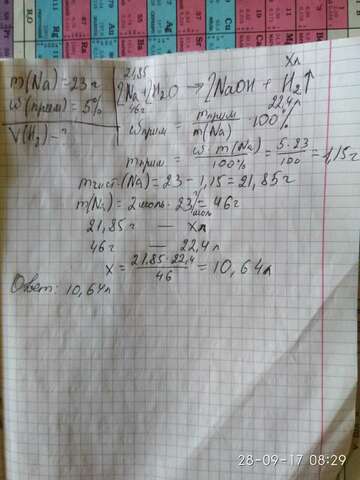 Xл
m(Na) = 23г
21,85
2Na + 2H2O → 2NaOH + H2↑
46г
22,4л
w(прим) = 5%
V(H2) - ?
wприм = mприм / m(Na) · 100%
mприм = w · m(Na) / 100% = 5 · 23 / 100 = 1,15г
mчист.(Na) = 23 - 1,15 = 21,85г
m(Na) = 2моль · 23 г/моль = 46г
21,85г — Xл
46г — 22,4л
X = 21,85 · 22,4 / 46 = 10,64л
Ответ: 10,64л
28-09-17 08:29